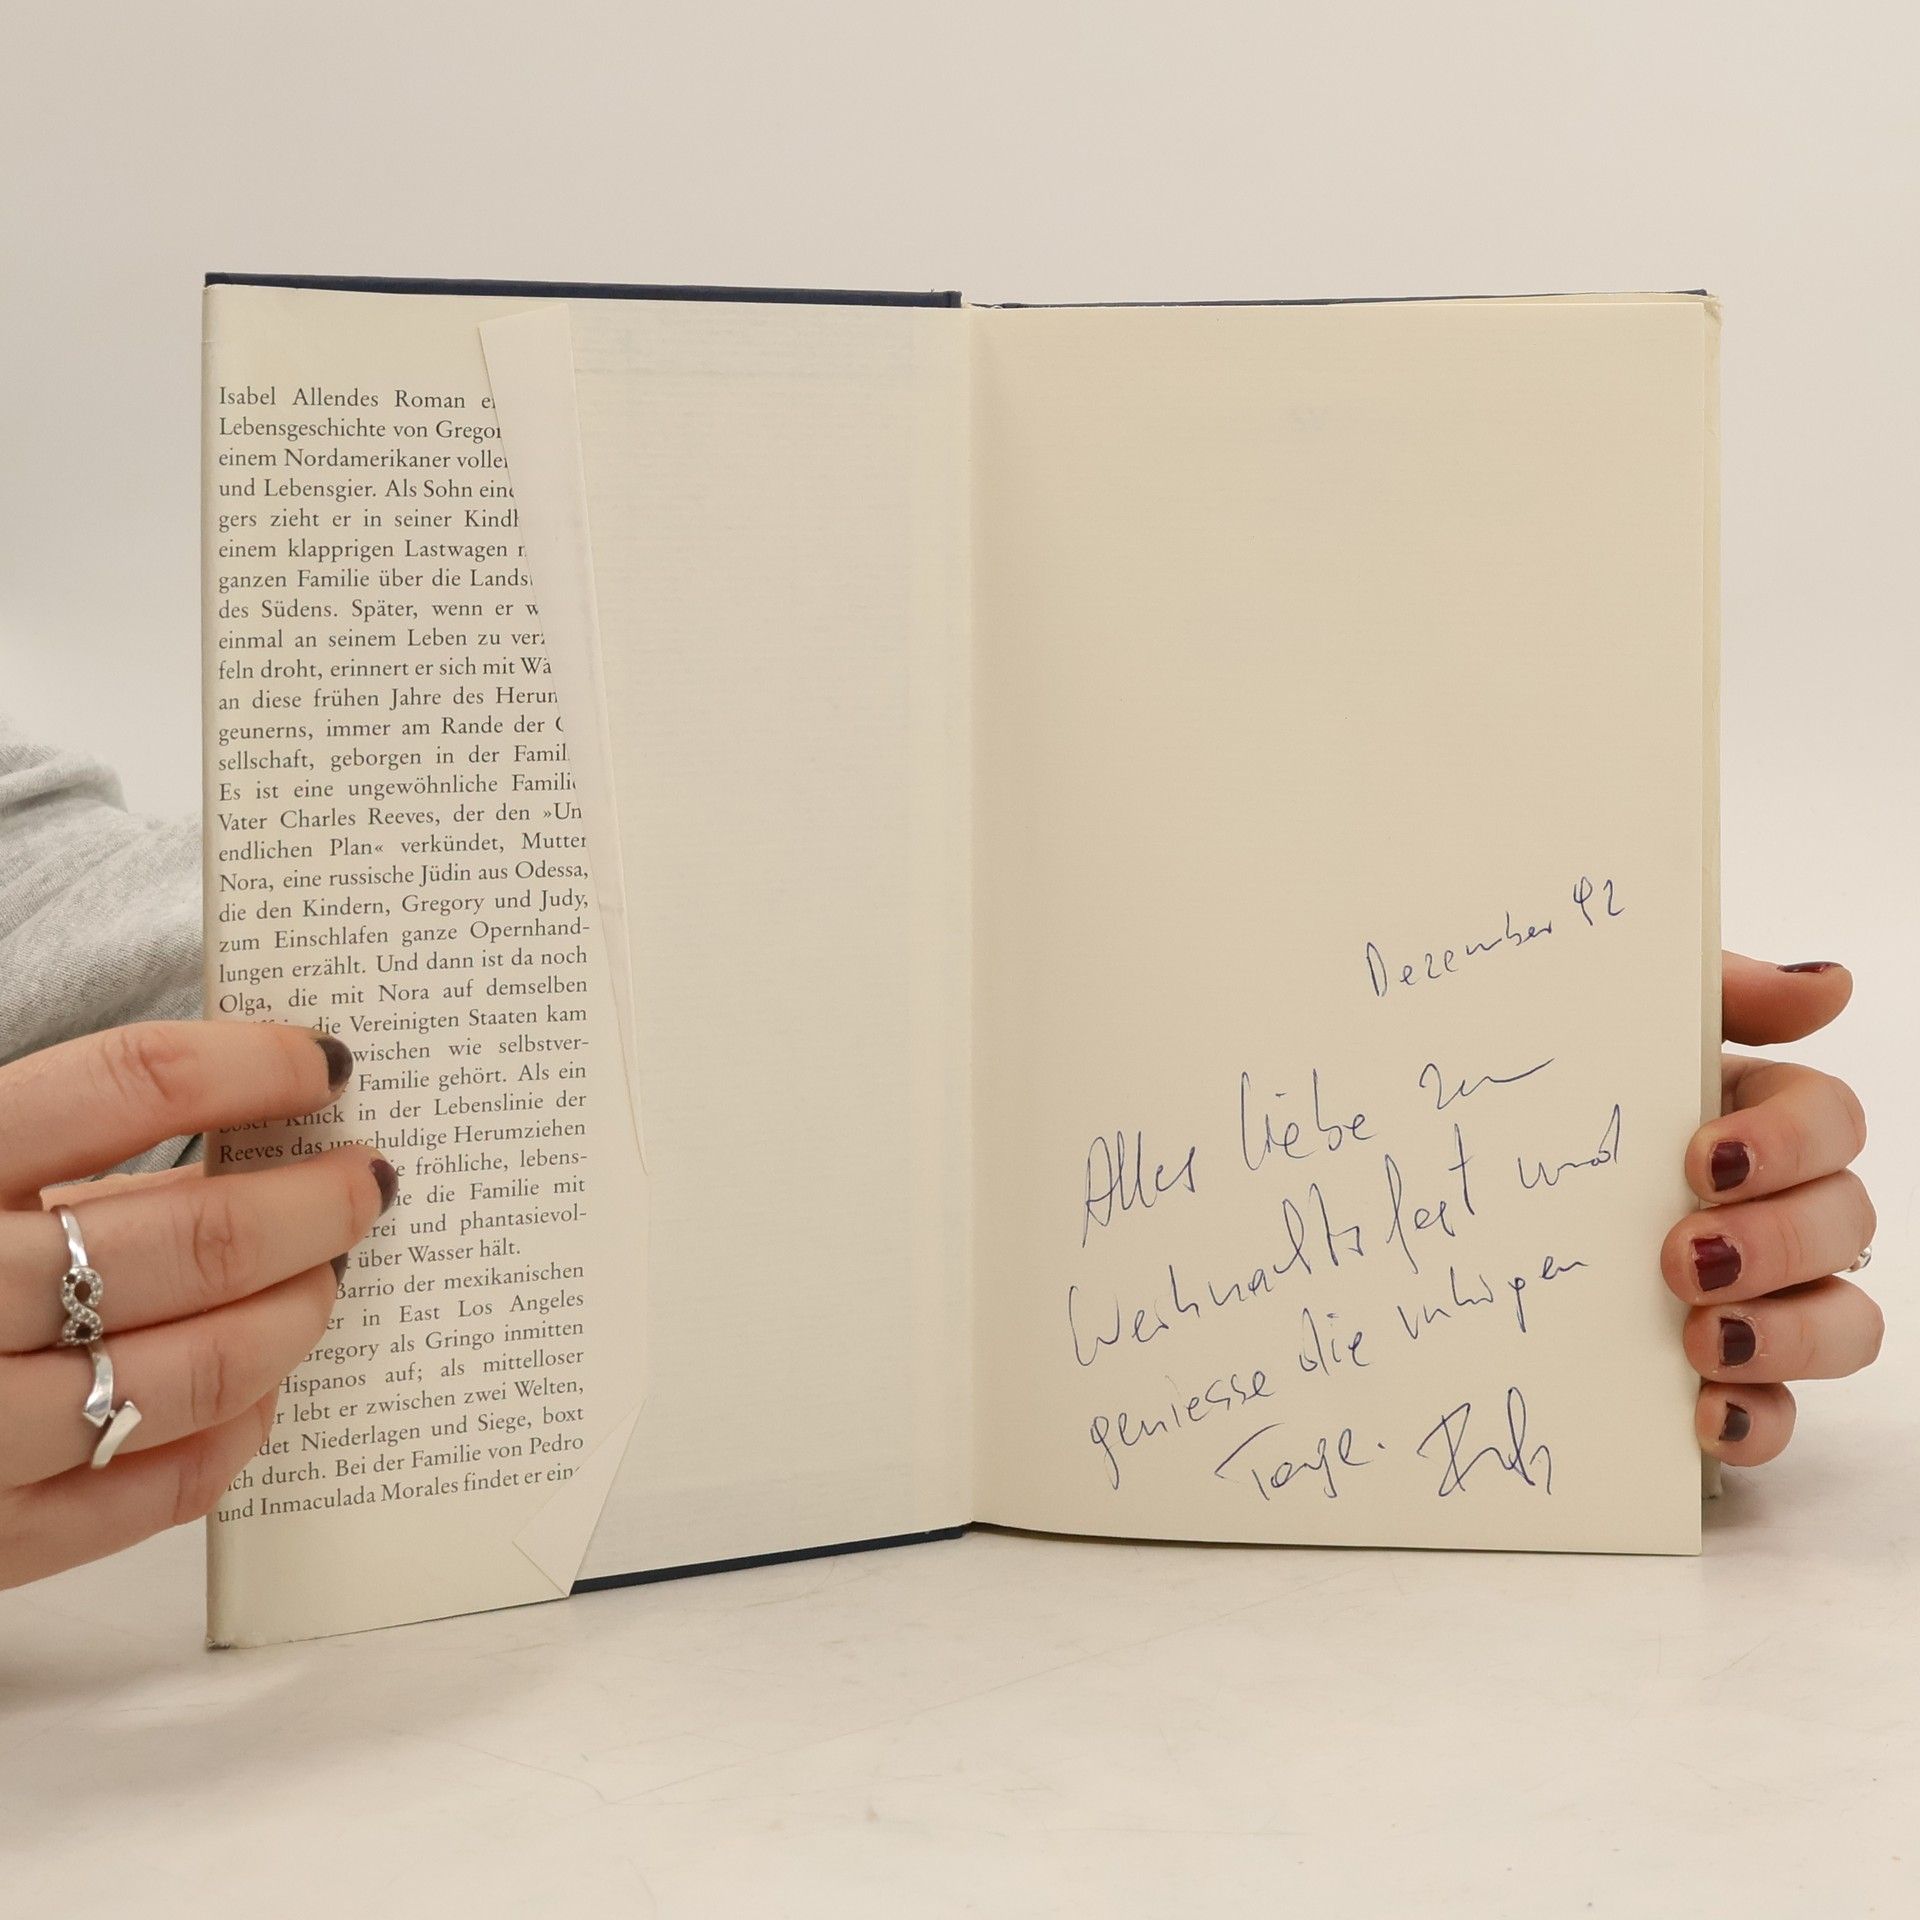 Isabel Allendes Roman
Lebensgeschichte von Gregor
einem Nordamerikaner
und Lebensgier. Als Sohn
gers zieht er in seiner
einem klapprigen Lastwagen
ganzen Familie über die
des Südens. Später, wenn er
einmal an seinem Leben zu
feln droht, erinnert er sich mit
an diese frühen Jahre des
geunerns, immer am Rande der
sellschaft, geborgen in der
Es ist eine ungewöhnliche
Vater Charles Reeves, der den »Un
endlichen Plan« verkündet, Mutter
Nora, eine russische Jüdin aus Odessa,
die den Kindern, Gregory und Judy,
zum Einschlafen ganze Opernhand-
lungen erzählt. Und dann ist da noch
Olga, die mit Nora auf demselben
die Vereinigten Staaten kam
wischen wie selbstver-
Familie gehört. Als ein
Knick in der Lebenslinie der
Reeves das unschuldige Herumziehen
fröhliche, lebens-
die Familie mit
und phantasievol-
über Wasser hält.
Barrio der mexikanischen
in East Los Angeles
Gregory als Gringo inmitten
Hispanos auf; als mittelloser
lebt er zwischen zwei Welten,
Niederlagen und Siege, boxt
durch. Bei der Familie von Pedro
und Inmaculada Morales findet er
Dezember 92
Alles liebe zum
Weihnachtsfest und
geniesse die ruhigen
Tage.